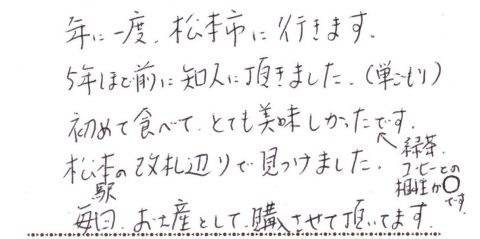 年に一度、松本市に行きます。
5年ほど前に知人に頂きました。(単ごもり)
初めて食べて、とても美味しかったです。
緑茶、
コーヒーとの
相性が○
です
松本駅の改札辺りで見つけました。
毎回、お土産として、購入させて頂いてます。